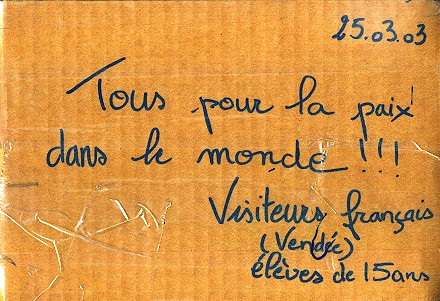 25.03.03
Tous pour la paix
dans le monde !!!
Visiteurs français
(Vendée)
élèves de 15 ans